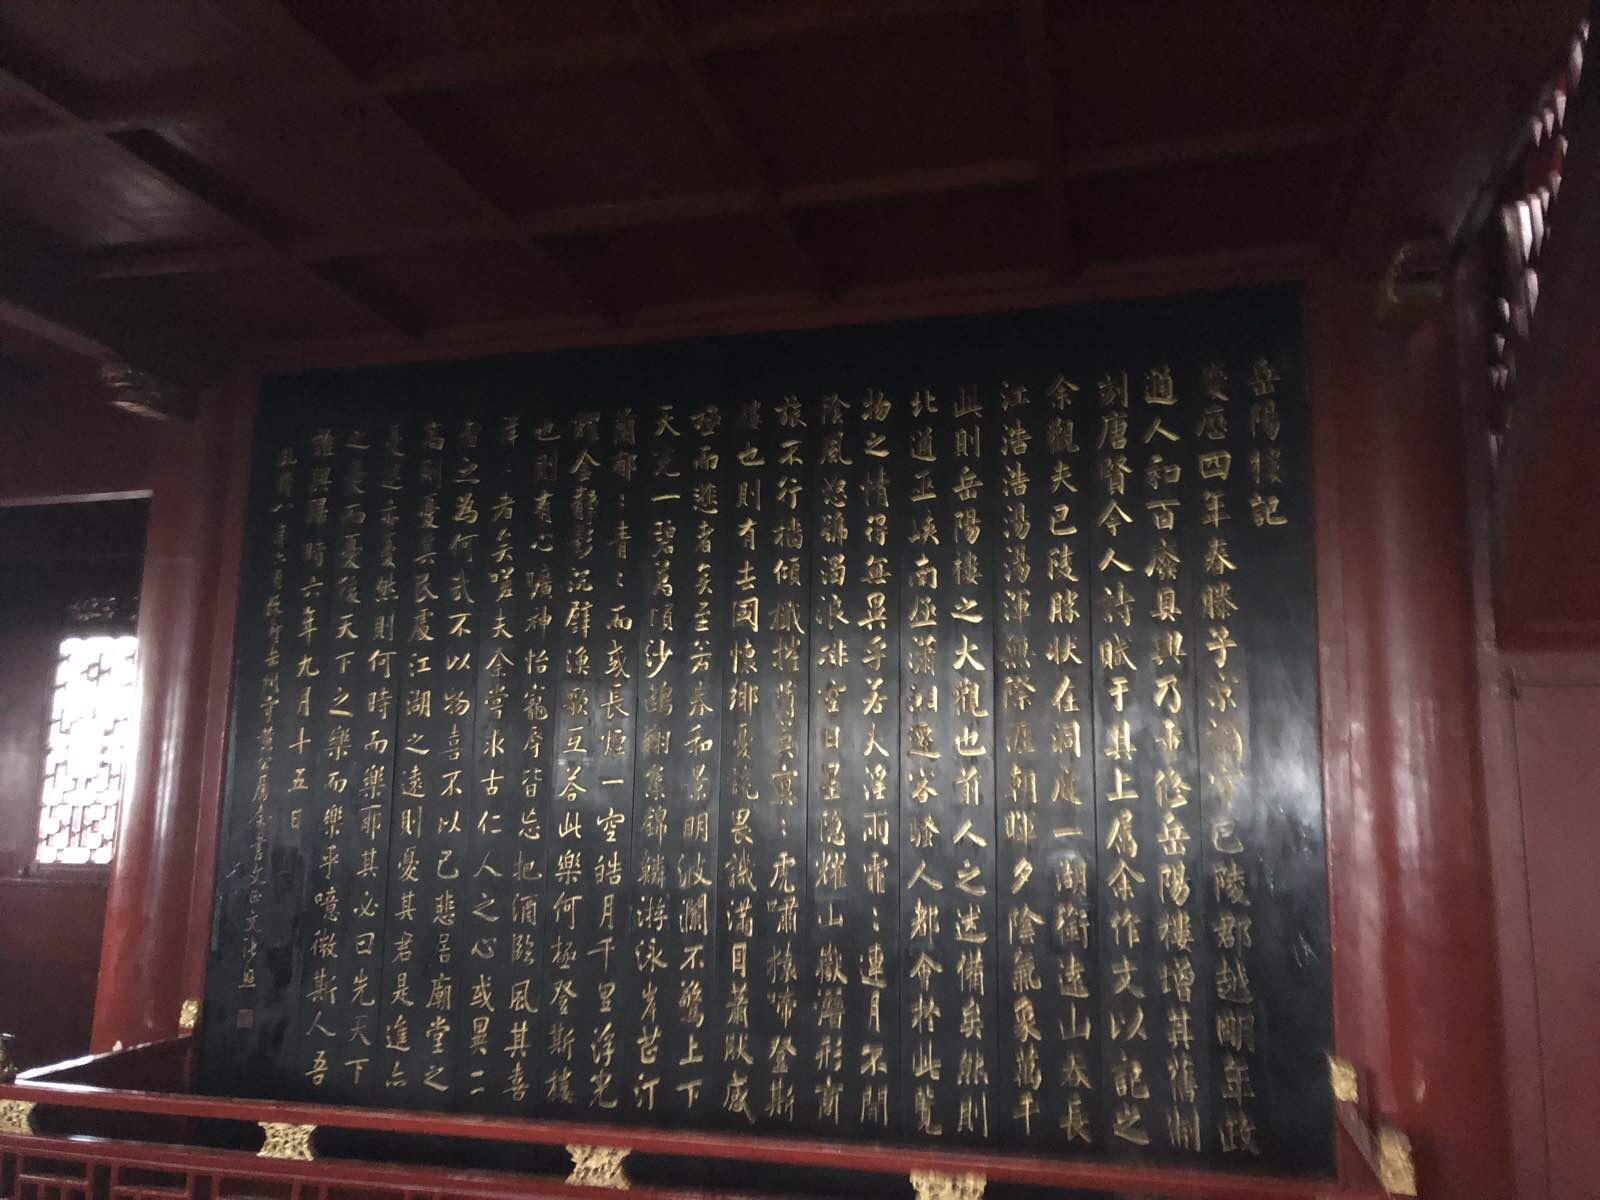 岳陽樓記
慶歷四年春滕子京謫守巴陵郡越明年政
通人和百廢具興乃重修岳陽樓增其舊制
刻唐賢今人詩賦于其上屬余作文以記之
余觀夫巴陵勝狀在洞庭一湖銜遠山吞長
江浩浩湯湯渾無際涯朝暉夕陰氣象萬千
此則岳陽樓之大觀也前人之述備矣然則
北通巫峽南極瀟湘遷客騷人都會於此覽
物之情得無異乎若夫淫雨霏〻連月不開
陰風怒號濁浪排空日星隱耀山嶽潛形商
旅不行檣傾檝摧薄暮冥〻虎嘯猿啼登斯
樓也則有去國懷鄉憂讒畏譏滿目蕭然感
極而悲者矣至若春和景明波瀾不驚上下
天光一碧萬頃沙鷗翔集錦鱗游泳岸芷汀
蘭郁〻青〻而或長煙一空皓月千里浮光
耀金靜影沉璧漁歌互答此樂何極登斯樓
也則有心曠神怡寵辱皆忘把酒臨風其喜
洋〻者矣嗟夫余嘗求古仁人之心或異二
者之為何哉不以物喜不以己悲居廟堂之
高則憂其民處江湖之遠則憂其君是進亦
憂退亦憂然則何時而樂耶其必曰先天下
之憂而憂後天下之樂而樂乎噫微斯人吾
誰與歸時六年九月十五日
乾隆八年岳州守黃公屬余書文正文張照